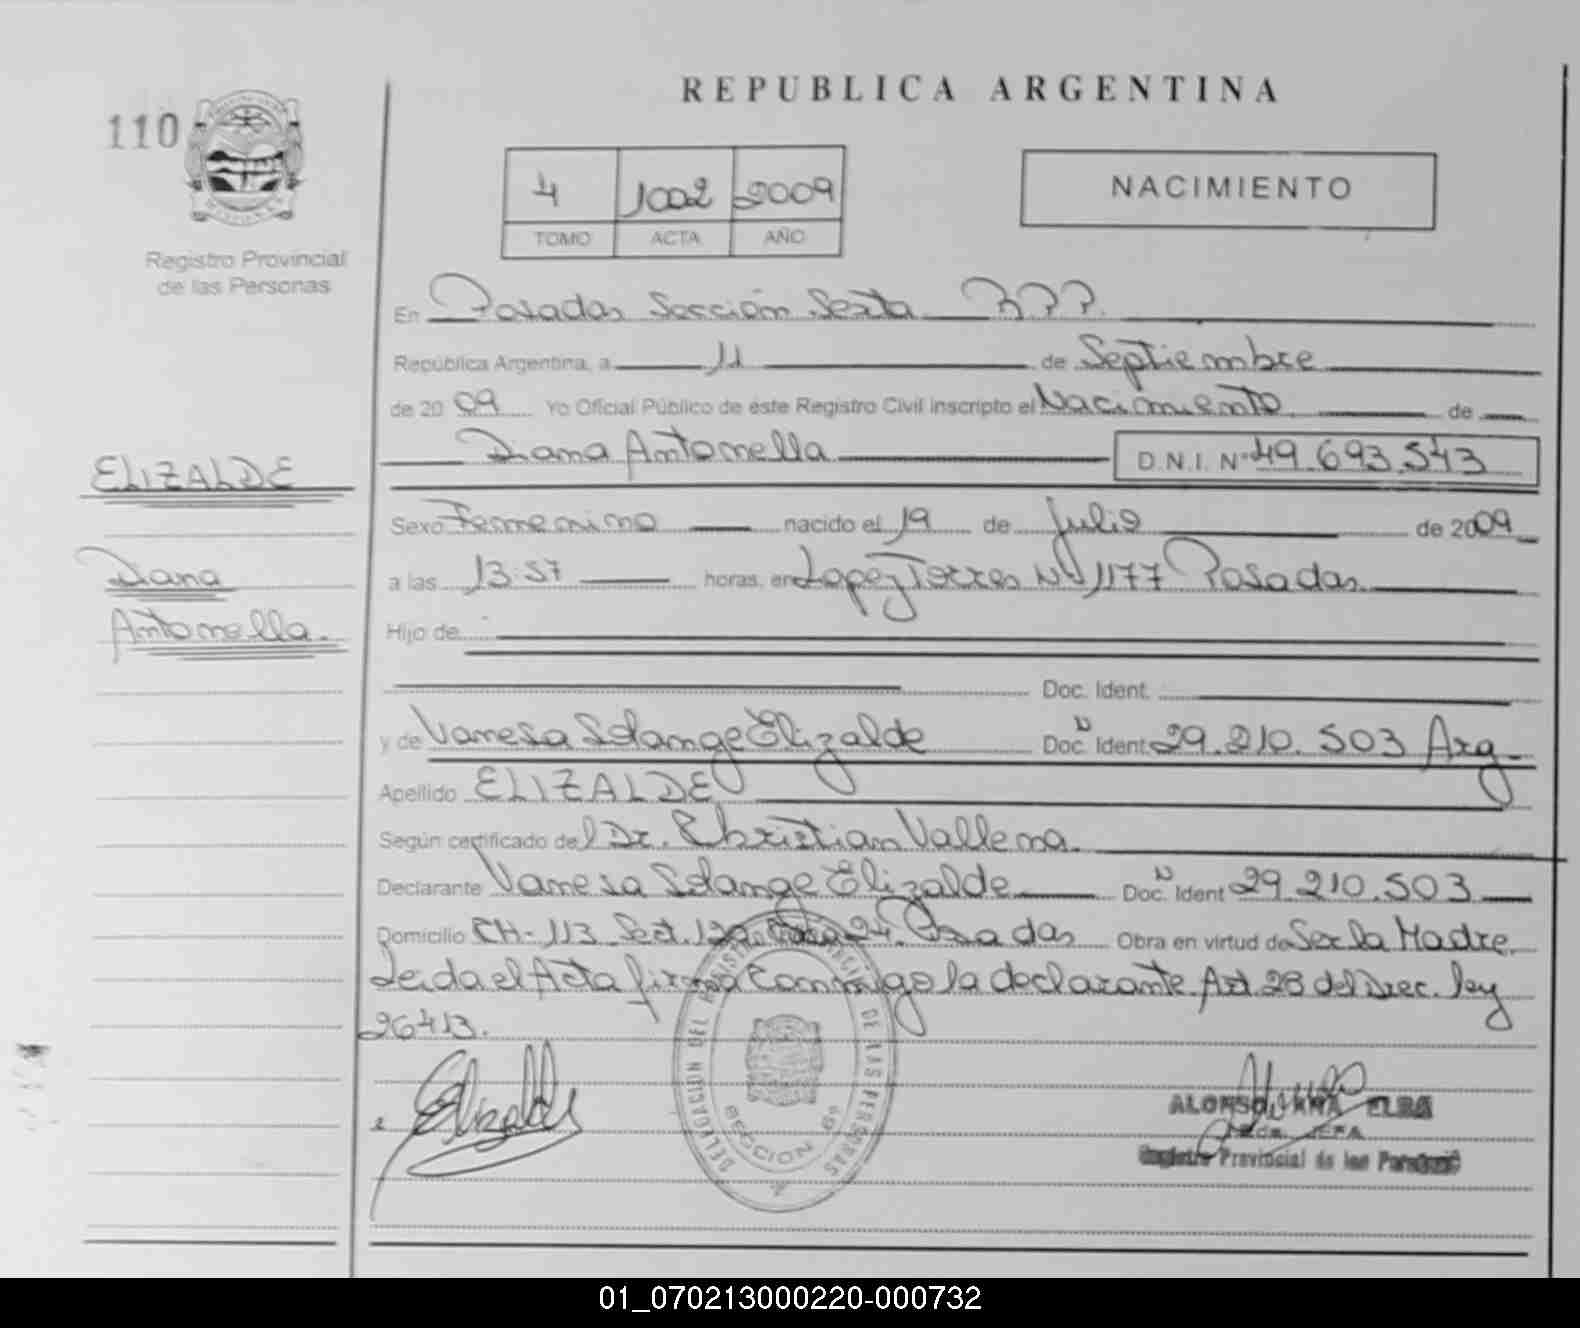 REPUBLICA ARGENTINA
110
4 1002 2009
TOMO ACTA AÑO
NACIMIENTO
Registro Provincial
de las Personas
En Posadas Sección Sexta R.P.P.
República Argentina, a 11 de Septiembre
de 2009 Yo Oficial Público de éste Registro Civil inscripto el Nacimiento de
Diana Antonella D.N.I. Nº 49.693.543
ELIZALDE
Sexo Femenino nacido el 19 de Julio de 2009
Diana
a las 13:57 horas. en Lopez Torres Nº 1177 Posadas
Antonella.
Hijo de
Doc. Ident.
y de Vanesa Solange Elizalde Doc. N Ident. 29.210.503 Arg.
Apellido ELIZALDE
Según certificado del Dr. Christian Vallema.
Declarante Vanesa Solange Elizalde Doc. N Ident 29.210.503
Domicilio CH-113 Sect. 24. Posadas Obra en virtud de Ser la Madre.
Leida el Acta firma Conmigo la declarante Art. 28 del Drec. ley
26413.
Elizalde
DELEGACION DEL REGISTRO PROVINCIAL DE LAS PERSONAS
SECCION 6º
ALONSO, ANA ELBA
JEFA
Registro Provincial de las Personas
01_070213000220-000732